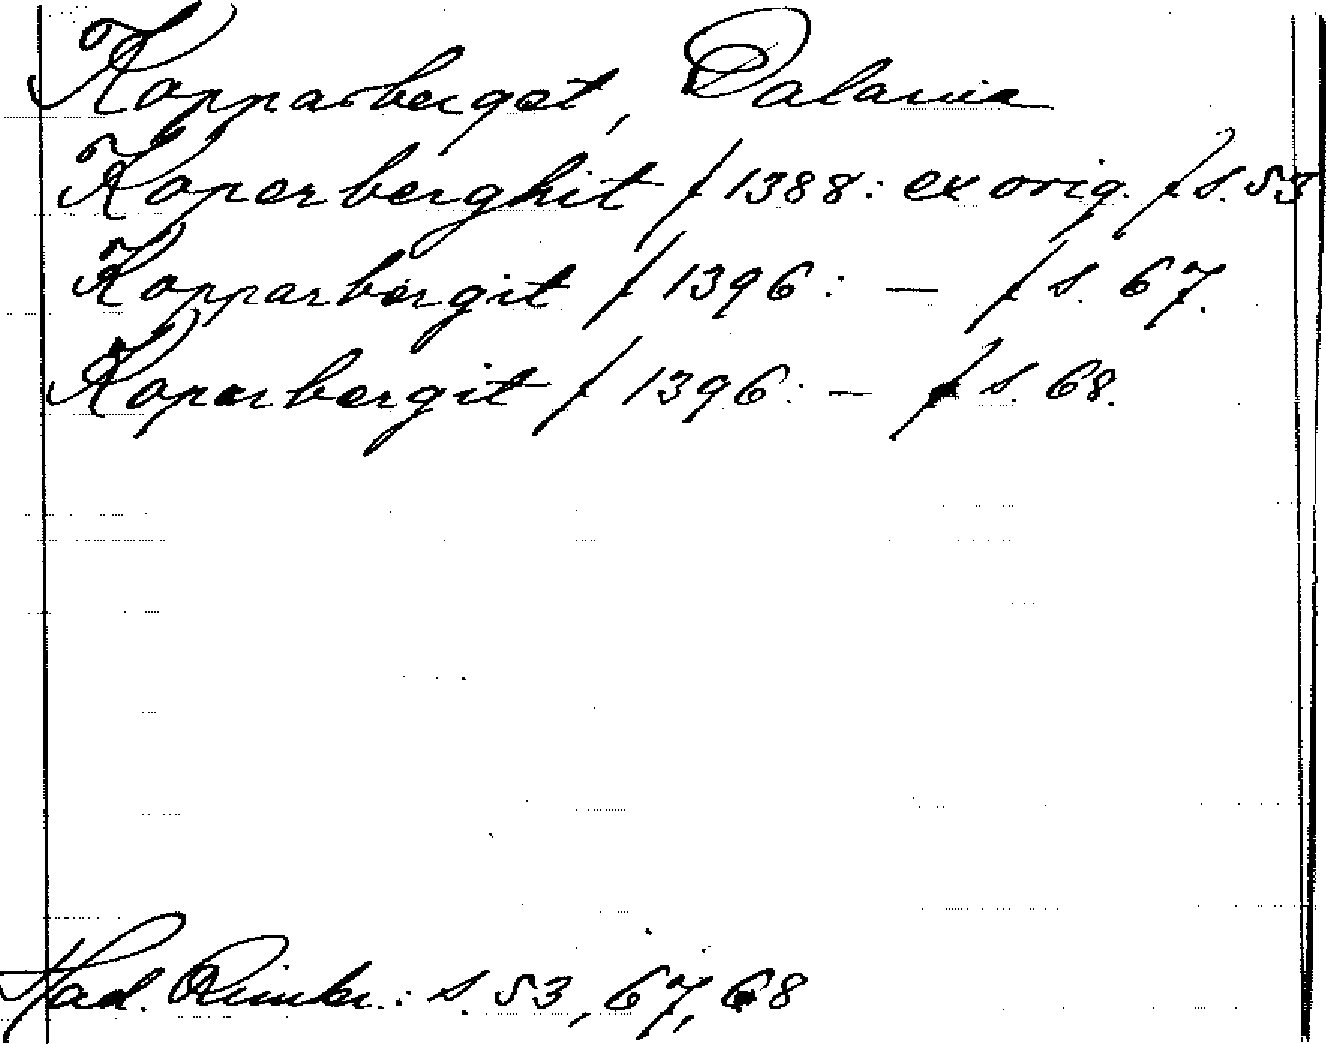 Kopparberget, Dalarna
Koperberghit / 1388: ex orig. / s. 53
Kopparbergit / 1396: — / s. 67.
Koparbergit / 1396: — / s. 68.
Had. Rimbr.: s. 53, 67, 68